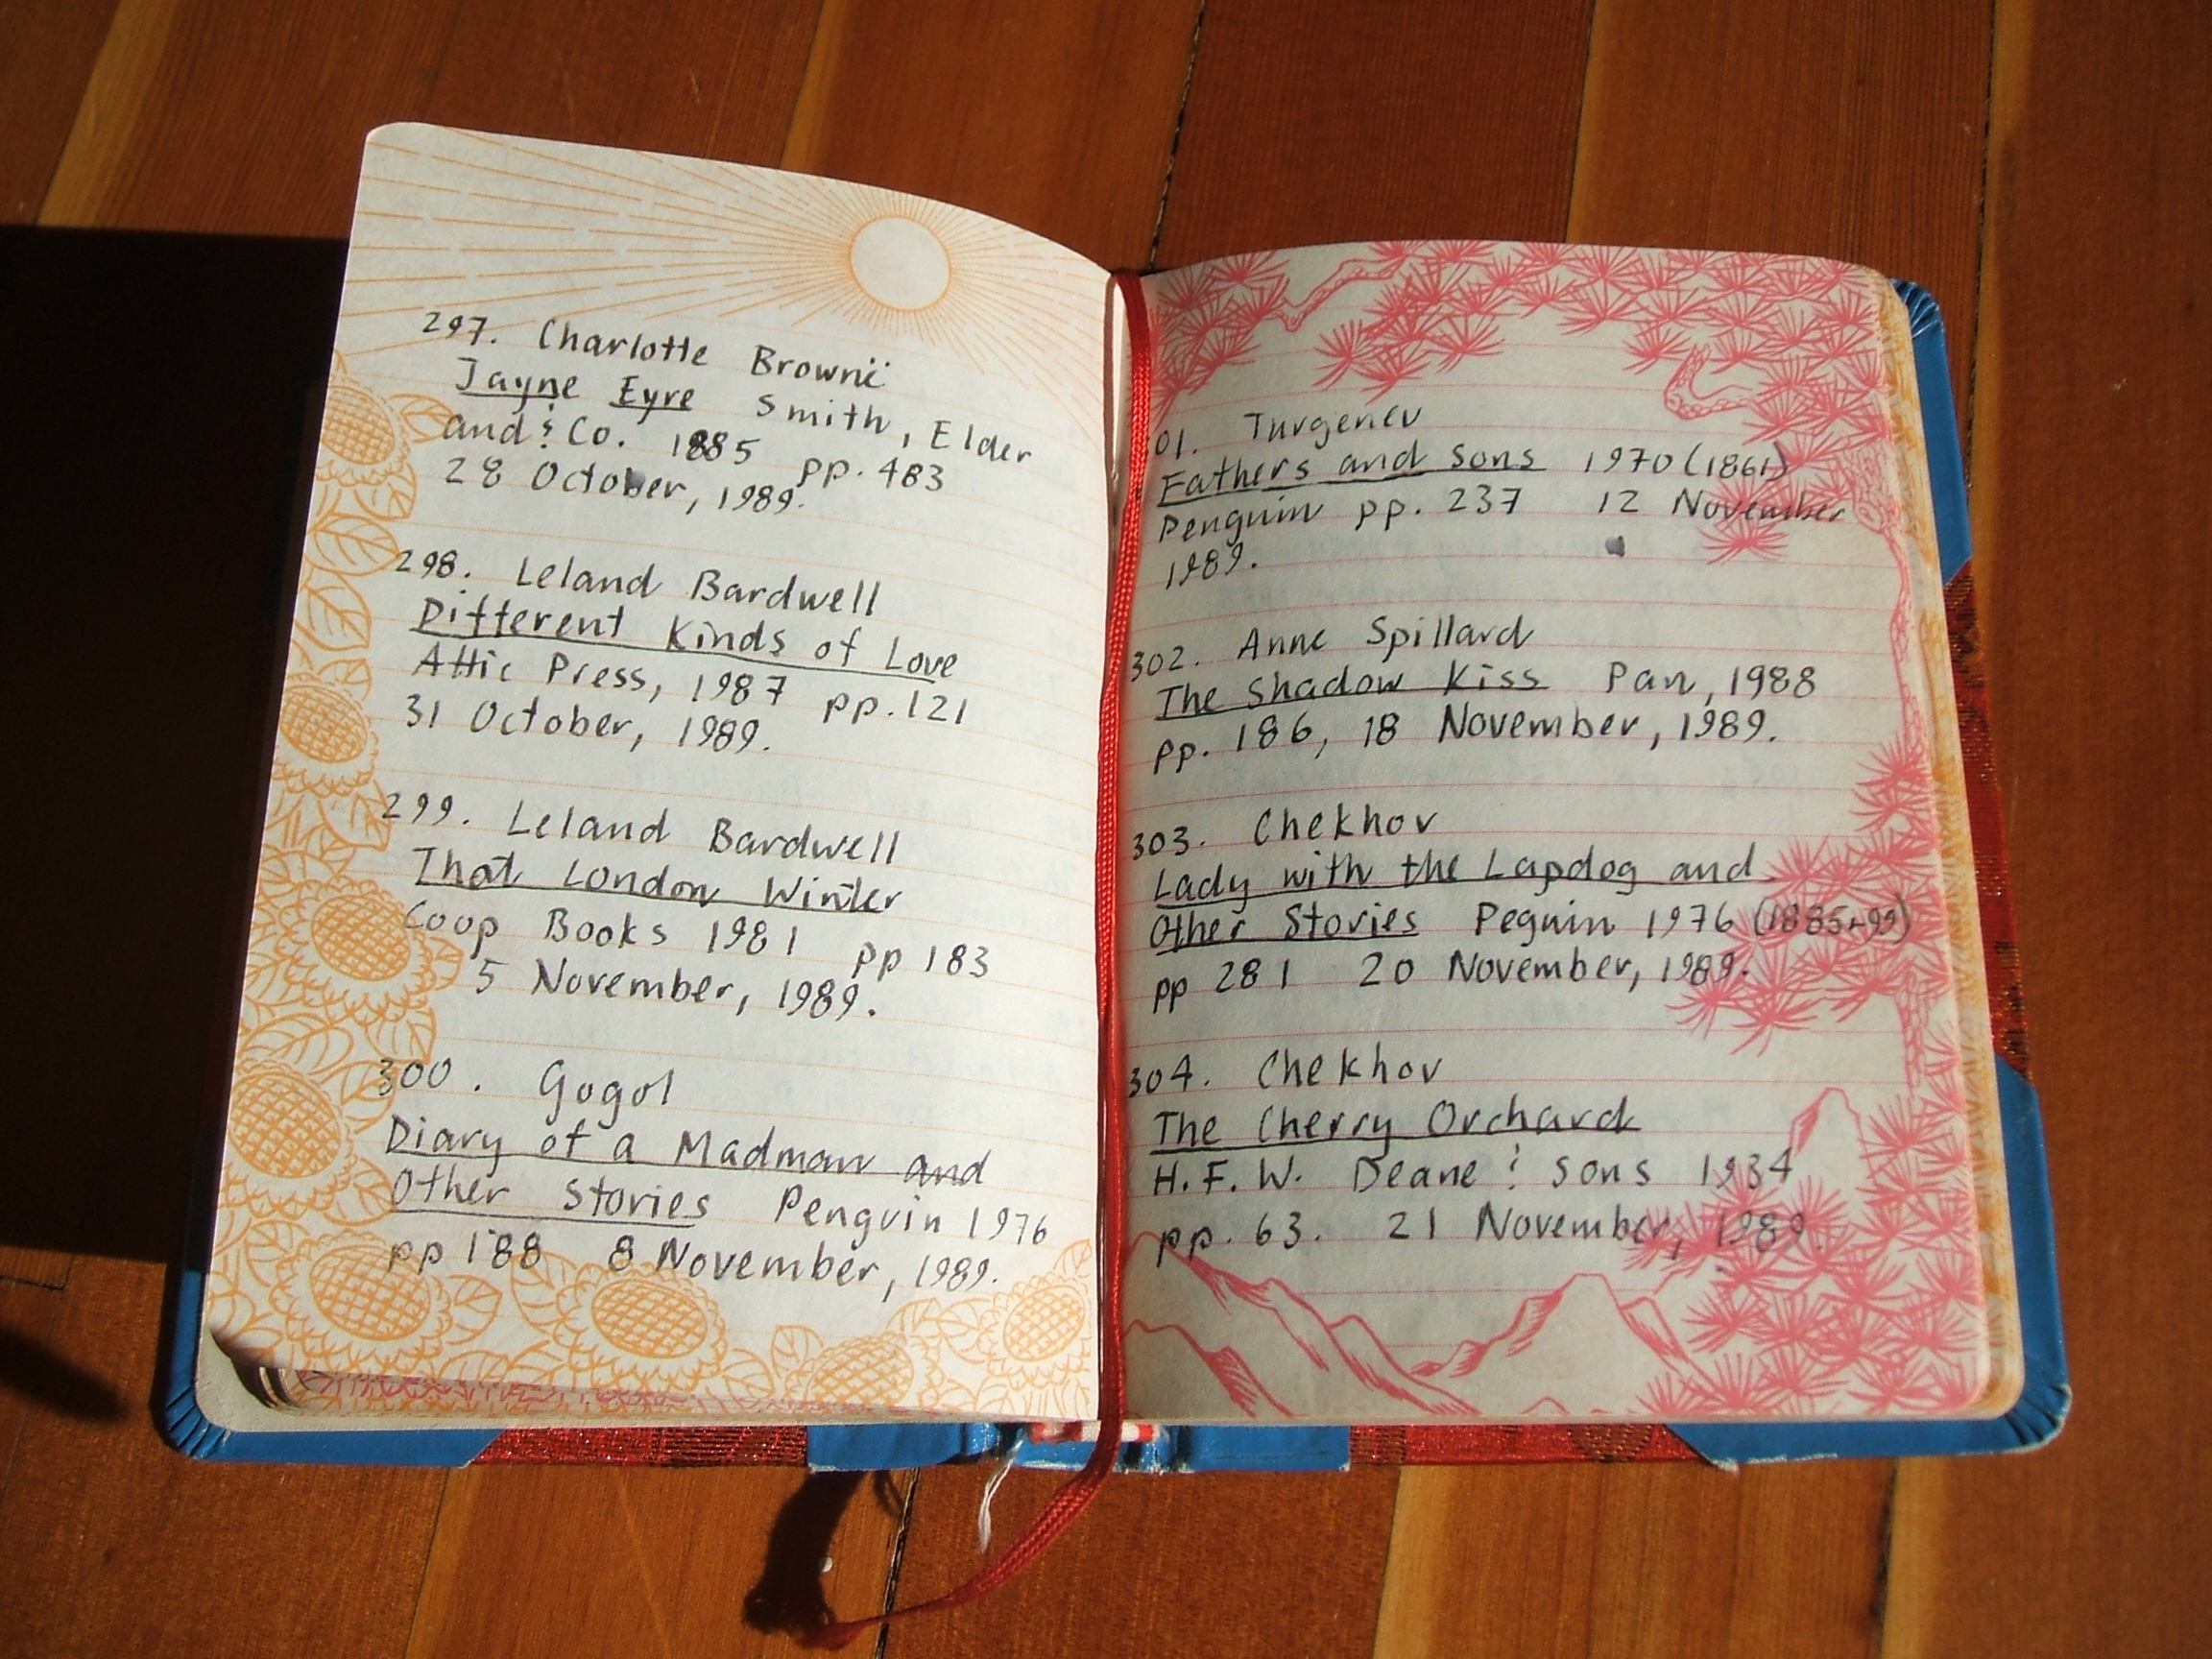 297. Charlotte Brownë
Jayne Eyre Smith, Elder
and & Co. 1885 pp. 483
28 October, 1989.
298. Leland Bardwell
Different Kinds of Love
Attic Press, 1987 pp. 121
31 October, 1989.
299. Leland Bardwell
That London Winter
Coop Books 1981 pp 183
5 November, 1989.
300. Gogol
Diary of a Madman and
Other Stories Penguin 1976
pp 188 8 November, 1989.
01. Turgenev
Fathers and Sons 1970 (1861)
Penguin pp. 237 12 November
1989.
302. Anne Spillard
The Shadow Kiss Pan, 1988
pp. 186, 18 November, 1989.
303. Chekhov
Lady with the Lapdog and
Other Stories Peguin 1976 (1885-99)
pp 281 20 November, 1989.
304. Chekhov
The Cherry Orchard
H. F. W. Deane & Sons 1934
pp. 63. 21 November, 1989.